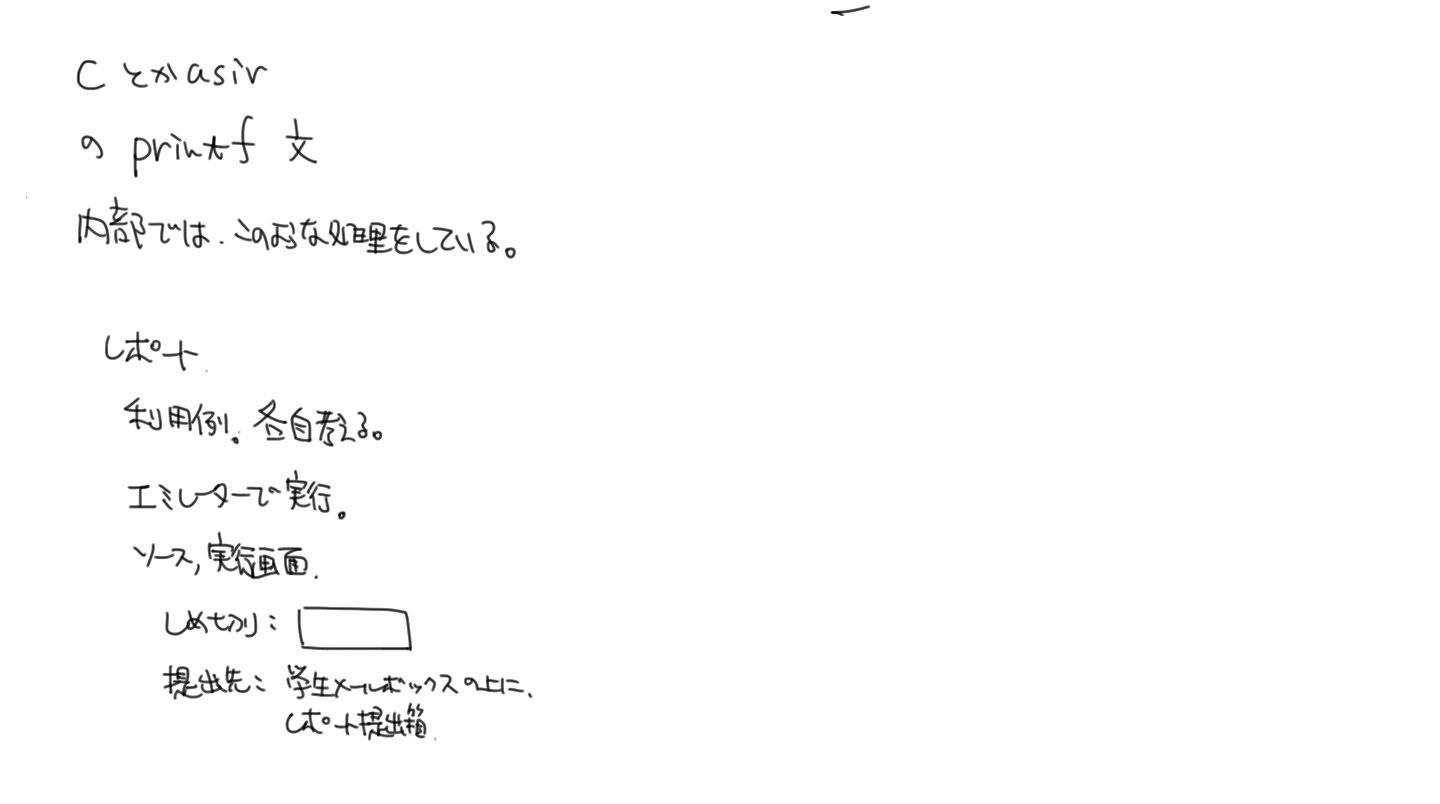 Cとかasir
の printf 文
内部では、このような処理をしている。
レポート.
利用例。各自考える。
エミレーターで実行。
ソース,実行画面.
しめ切り:
提出先: 学生メールボックスの上に、
レポート提出箱.